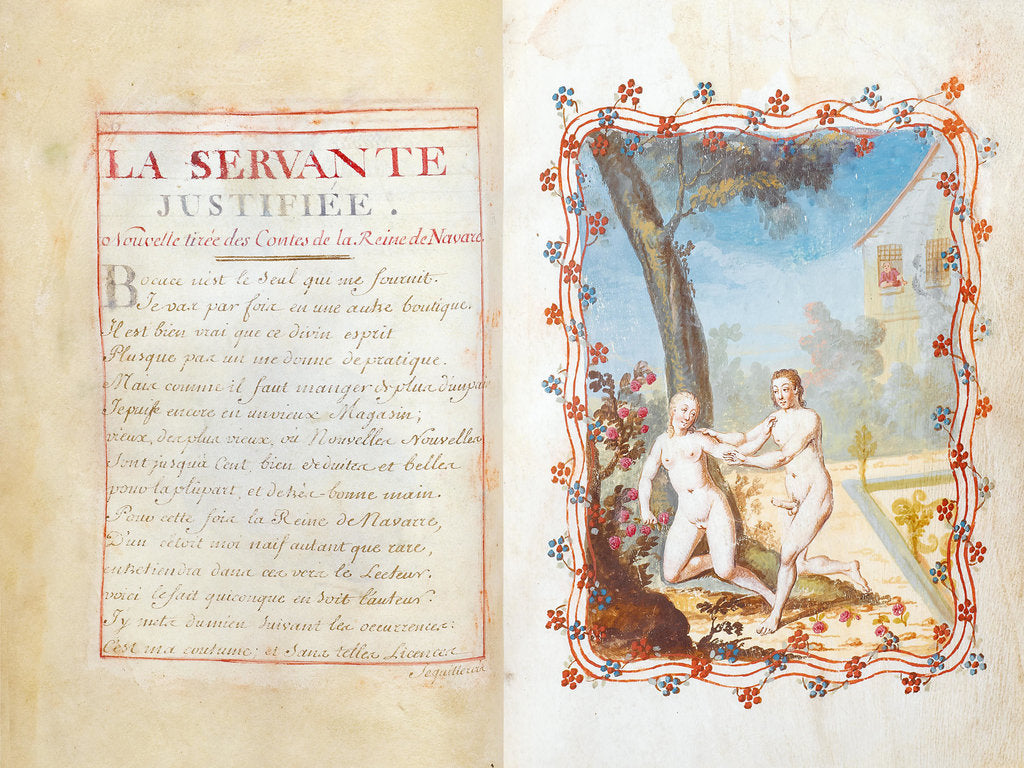 LA SERVANTE
JUSTIFIÉE.
Nouvelle tirée des Contes de la Reine de Navare.
Bocace n'est le Seul qui me fournit.
Je vax par foix en une autre boutique.
Il est bien vrai que ce divin esprit
Plusque pax un me donne de pratique.
Maix comme il faut manger de plux d'un pain
Je puise encore en un vieux Magasin;
vieux, dex plux vieux, où Nouvellex Nouvellex
Sont jusqu'à Cent, bien deduitex et bellex
pour la plûpart, et de trèx bonne main.
Pour cette foix la Reine de Navarre,
D'un c'étoit moi naif autant que rare,
entretiendra danx cex verx le Lecteur.
voici le fait quiconque en soit l'auteur.
J'y metx du mien suivant lex occurrencex:
C'est ma coutume; et Sanx tellex Licencex
Je quitterax